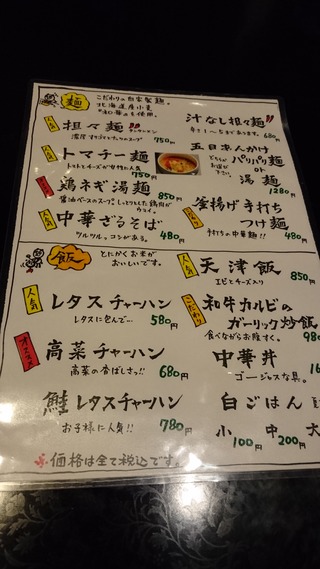 麺
こだわりの自家製麺。
北海道産小麦
を使用。
人気
担々麺
750円
トマチー麺
トマトとチーズが女性の人気
750円
鶏ネギ湯麺
850円
醤油ベースのスープ。
人気
中華ざるそば
ツルツルっコシがある。
480円
汁なし担々麺
辛さ1〜5まであります。
680円
五目あんかけ
パリパリ麺
or
湯麺
どちらか
お選び
下さい。
1280円
釜揚げ手打ち
つけ麺
手打ちの中華麺!!
480円
飯
とにかくお米が
おいしいです。
人気
レタスチャーハン
レタスに包んで…
580円
オススメ
高菜チャーハン
高菜の香ばしさっ!!
680円
鮭レタスチャーハン
お子様に人気!!
780円
人気
天津飯
エビとチーズ入り
850円
こだわり
和牛カルビの
ガーリック炒飯
食べながらお陰すく。
980
中華丼
ゴージャスな具。
白ごはん
小 中 大
100円 200円
価格は全て税込です。